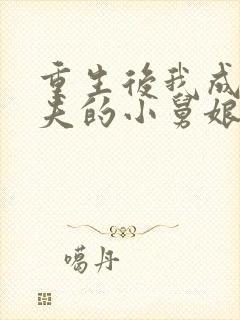 重生後我成
夫的小舅娘
噶丹